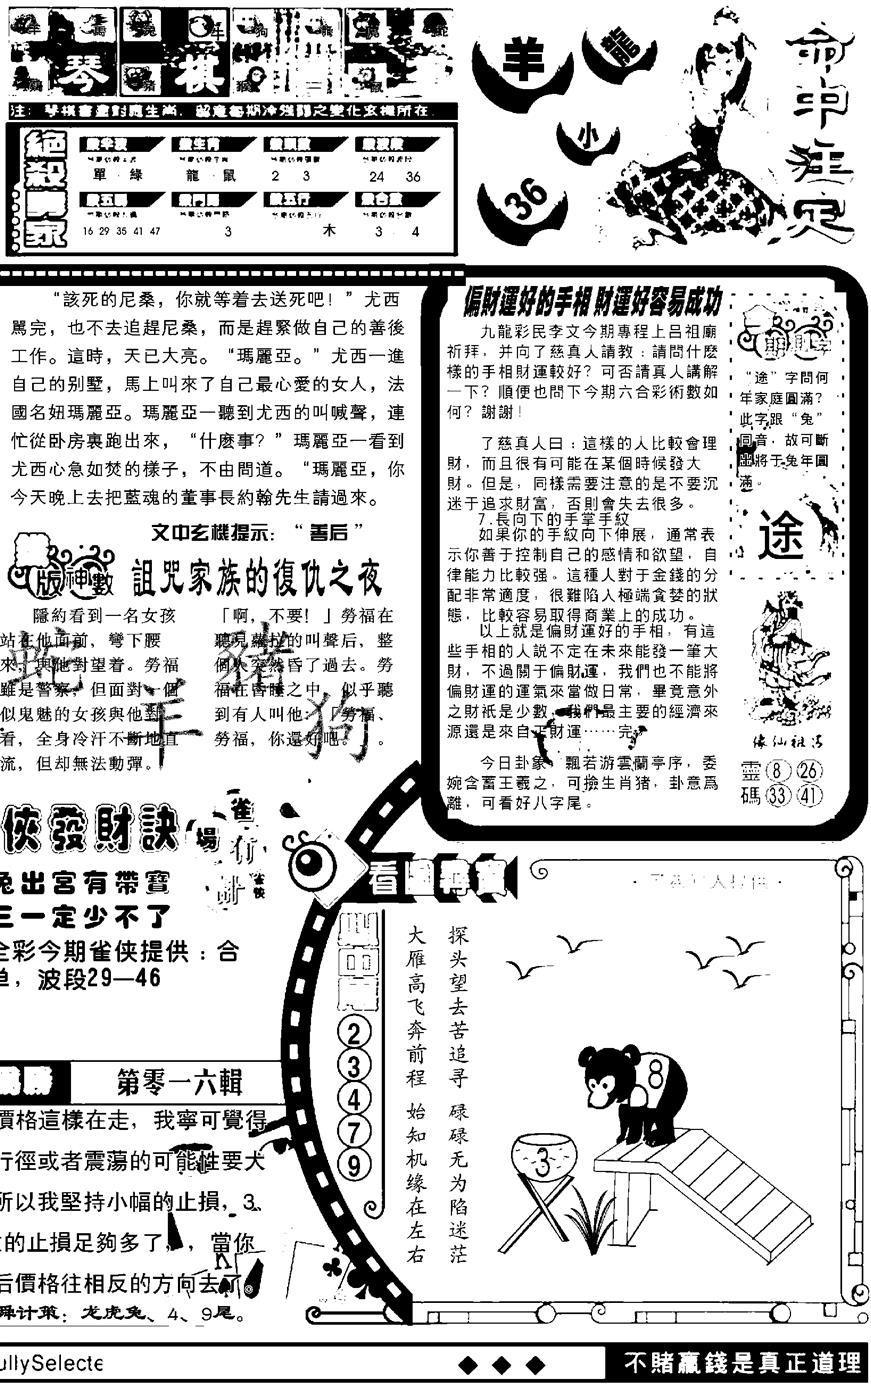 琴棋
注：琴棋書畫對應生肖，留意每期冷強弱之變化玄機所在.
絕殺專家
單 · 綠
龍 · 鼠
2 3
24 36
16 29 35 41 47
3
木
3 · 4
羊
龍
小
36
命中注定
“該死的尼桑，你就等着去送死吧！”尤西
罵完，也不去追趕尼桑，而是趕緊做自己的善後
工作。這時，天已大亮。“瑪麗亞。”尤西一進
自己的别墅，馬上叫來了自己最心愛的女人，法
國名妞瑪麗亞。瑪麗亞一聽到尤西的叫喊聲，連
忙從卧房裏跑出來，“什麽事？”瑪麗亞一看到
尤西心急如焚的樣子，不由問道。“瑪麗亞，你
今天晚上去把藍魂的董事長約翰先生請過來。
文中玄機提示：“善后”
版神數
詛咒家族的復仇之夜
隱約看到一名女孩
站在他面前，彎下腰
來，與他對望着。勞福
雖是警察，但面對一個
似鬼魅的女孩與他對
看，全身冷汗不斷地直
流，但却無法動彈。
「啊，不要！」勞福在
聽見蘿拉的叫聲后，整
個人突然昏了過去。勞
福在昏睡之中，似乎聽
到有人叫他：「勞福、
勞福，你還好吧？」。
蛇 豬
羊 狗
偏財運好的手相 財運好容易成功
九龍彩民李文今期專程上吕祖廟
祈拜，并向了慈真人請教：請問什麽
樣的手相財運較好？可否請真人講解
一下？順便也問下今期六合彩術數如
何？謝謝！
了慈真人曰：這樣的人比較會理
財，而且很有可能在某個時候發大
財。但是，同樣需要注意的是不要沉
迷于追求財富，否則會失去很多。
7.長向下的手掌手紋
如果你的手紋向下伸展，通常表
示你善于控制自己的感情和欲望，自
律能力比較强。這種人對于金錢的分
配非常適度，很難陷人極端貪婪的狀
態，比較容易取得商業上的成功。
以上就是偏財運好的手相，有這
些手相的人説不定在未來能發一筆大
財，不過關于偏財運，我們也不能將
偏財運的運氣來當做日常，畢竟意外
之財衹是少數，我們最主要的經濟來
源還是來自正財運……完。
今日卦象：飄若游雲蘭亭序，委
婉含蓄王羲之，可撿生肖猪，卦意爲
離，可看好八字尾。
“途”字問何
年家庭圓滿？
此字跟“兔”
同音，故可斷
出將于兔年圓
滿。
途
靈 8 26
碼 33 41
俠發財訣
雀場
雀俠
兔出宮有帶寶
三一定少不了
全彩今期雀侠提供：合
单，波段29—46
第零一六輯
價格這樣在走，我寧可覺得
行徑或者震蕩的可能性要大
所以我堅持小幅的止損，3、
的止損足夠多了，，當你
后價格往相反的方向去了。
舜计策：龙虎兔、4、9尾。
探头望去苦追寻 碌碌无为陷迷茫
大雁高飞奔前程 始知机缘在左右
2
3
4
7
9
8
3
ullySelecte
不賭贏錢是真正道理